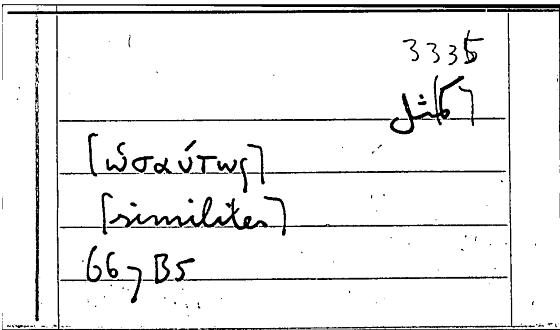 3335
[مثل]
[ὡσαύτως]
[similiter]
667 B5